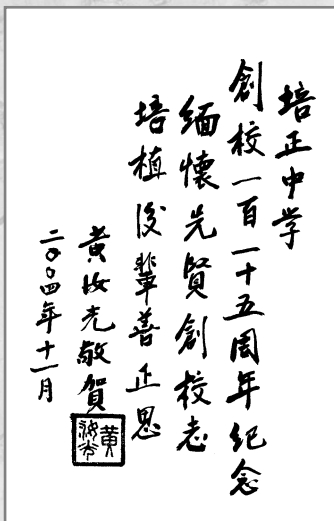 培正中学
創校一百一十五周年纪念
缅懷先賢創校志
培植後輩善正恩
黄汝光敬賀
二〇〇四年十一月
黄汝光